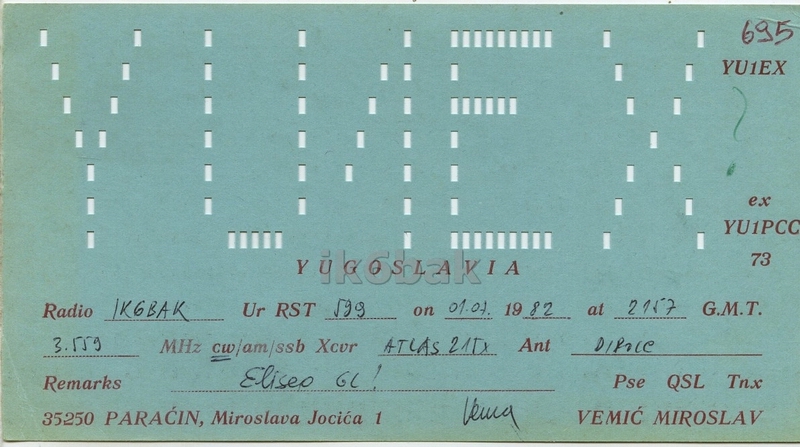 695
YU1EX
YU1EX
ex
YU1PCC
73
YUGOSLAVIA
ik6bak
Radio IK6BAK Ur RST 599 on 01.01. 1982 at 2157 G.M.T.
3.559 MHz cw/am/ssb Xcvr ATLAS 215x Ant DIPOLE
Remarks Eliseo GL! Pse QSL Tnx
35250 PARAĆIN, Miroslava Jocića 1 VEMIĆ MIROSLAV